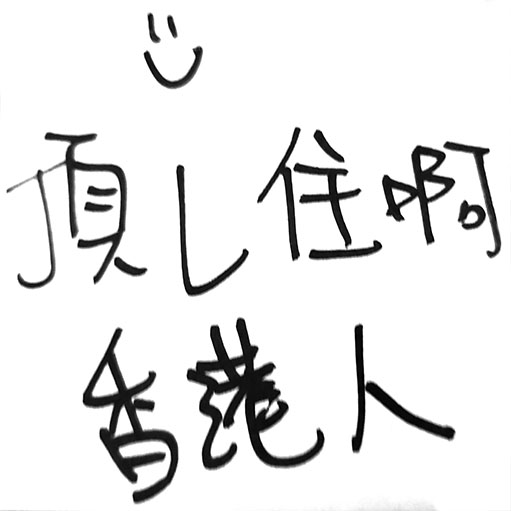 頂し住啊
香港人